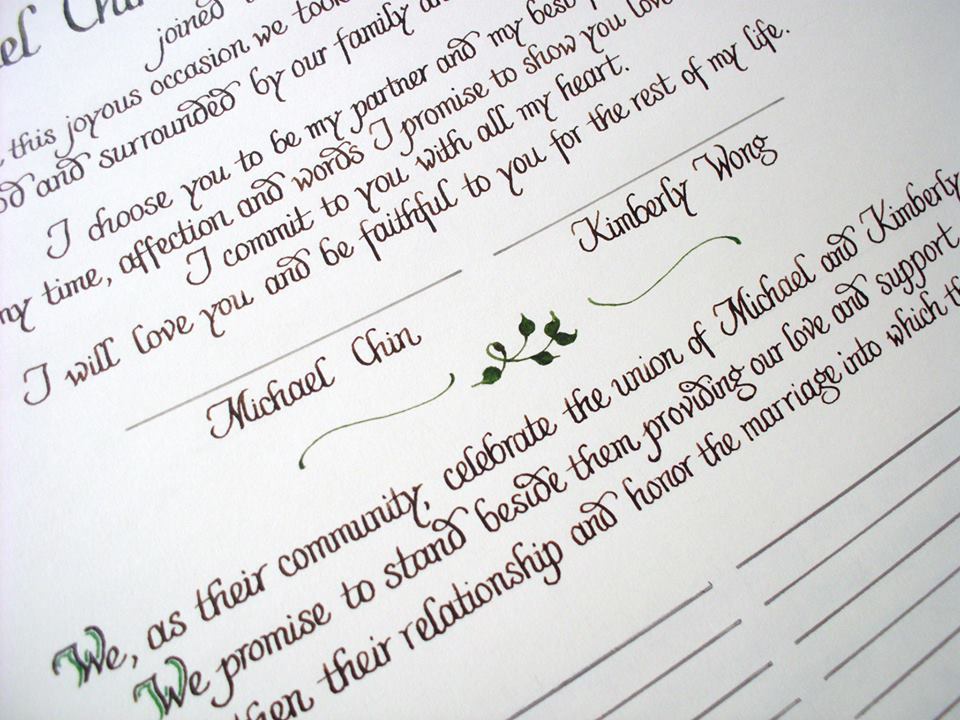 joined
this joyous occasion we took
and surrounded by our family
I choose you to be my partner and my best
my time, affection and words I promise to show you love
I commit to you with all my heart.
I will love you and be faithful to you for the rest of my life.
Michael Chin
Kimberly Wong
We, as their community, celebrate the union of Michael and Kimberly
We promise to stand beside them providing our love and support
their relationship and honor the marriage into which